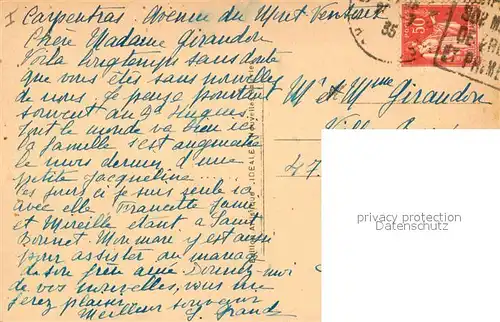 I Carpentras. Avenue du Mont Ventoux
Chère Madame Girandon
Voila longtemps sans doute
que vous êtes sans nouvelles
de nous. Je pense pourtant
souvent au
tout le monde va bien ici
la famille s'est augmentée
le mois dernier d'une
petite Jacqueline...
ces jours ci je suis seule ici
avec elle Francette
et Mireille étant à Saint
Bonnet. Mon mari y est aussi
pour assister au mariage
de son frère ainé Donnez-moi
de vos nouvelles, vous me
ferez plaisir
Meilleur souvenir
Mr et Mme Girandon
47
35
50
privacy protection
privacy protection